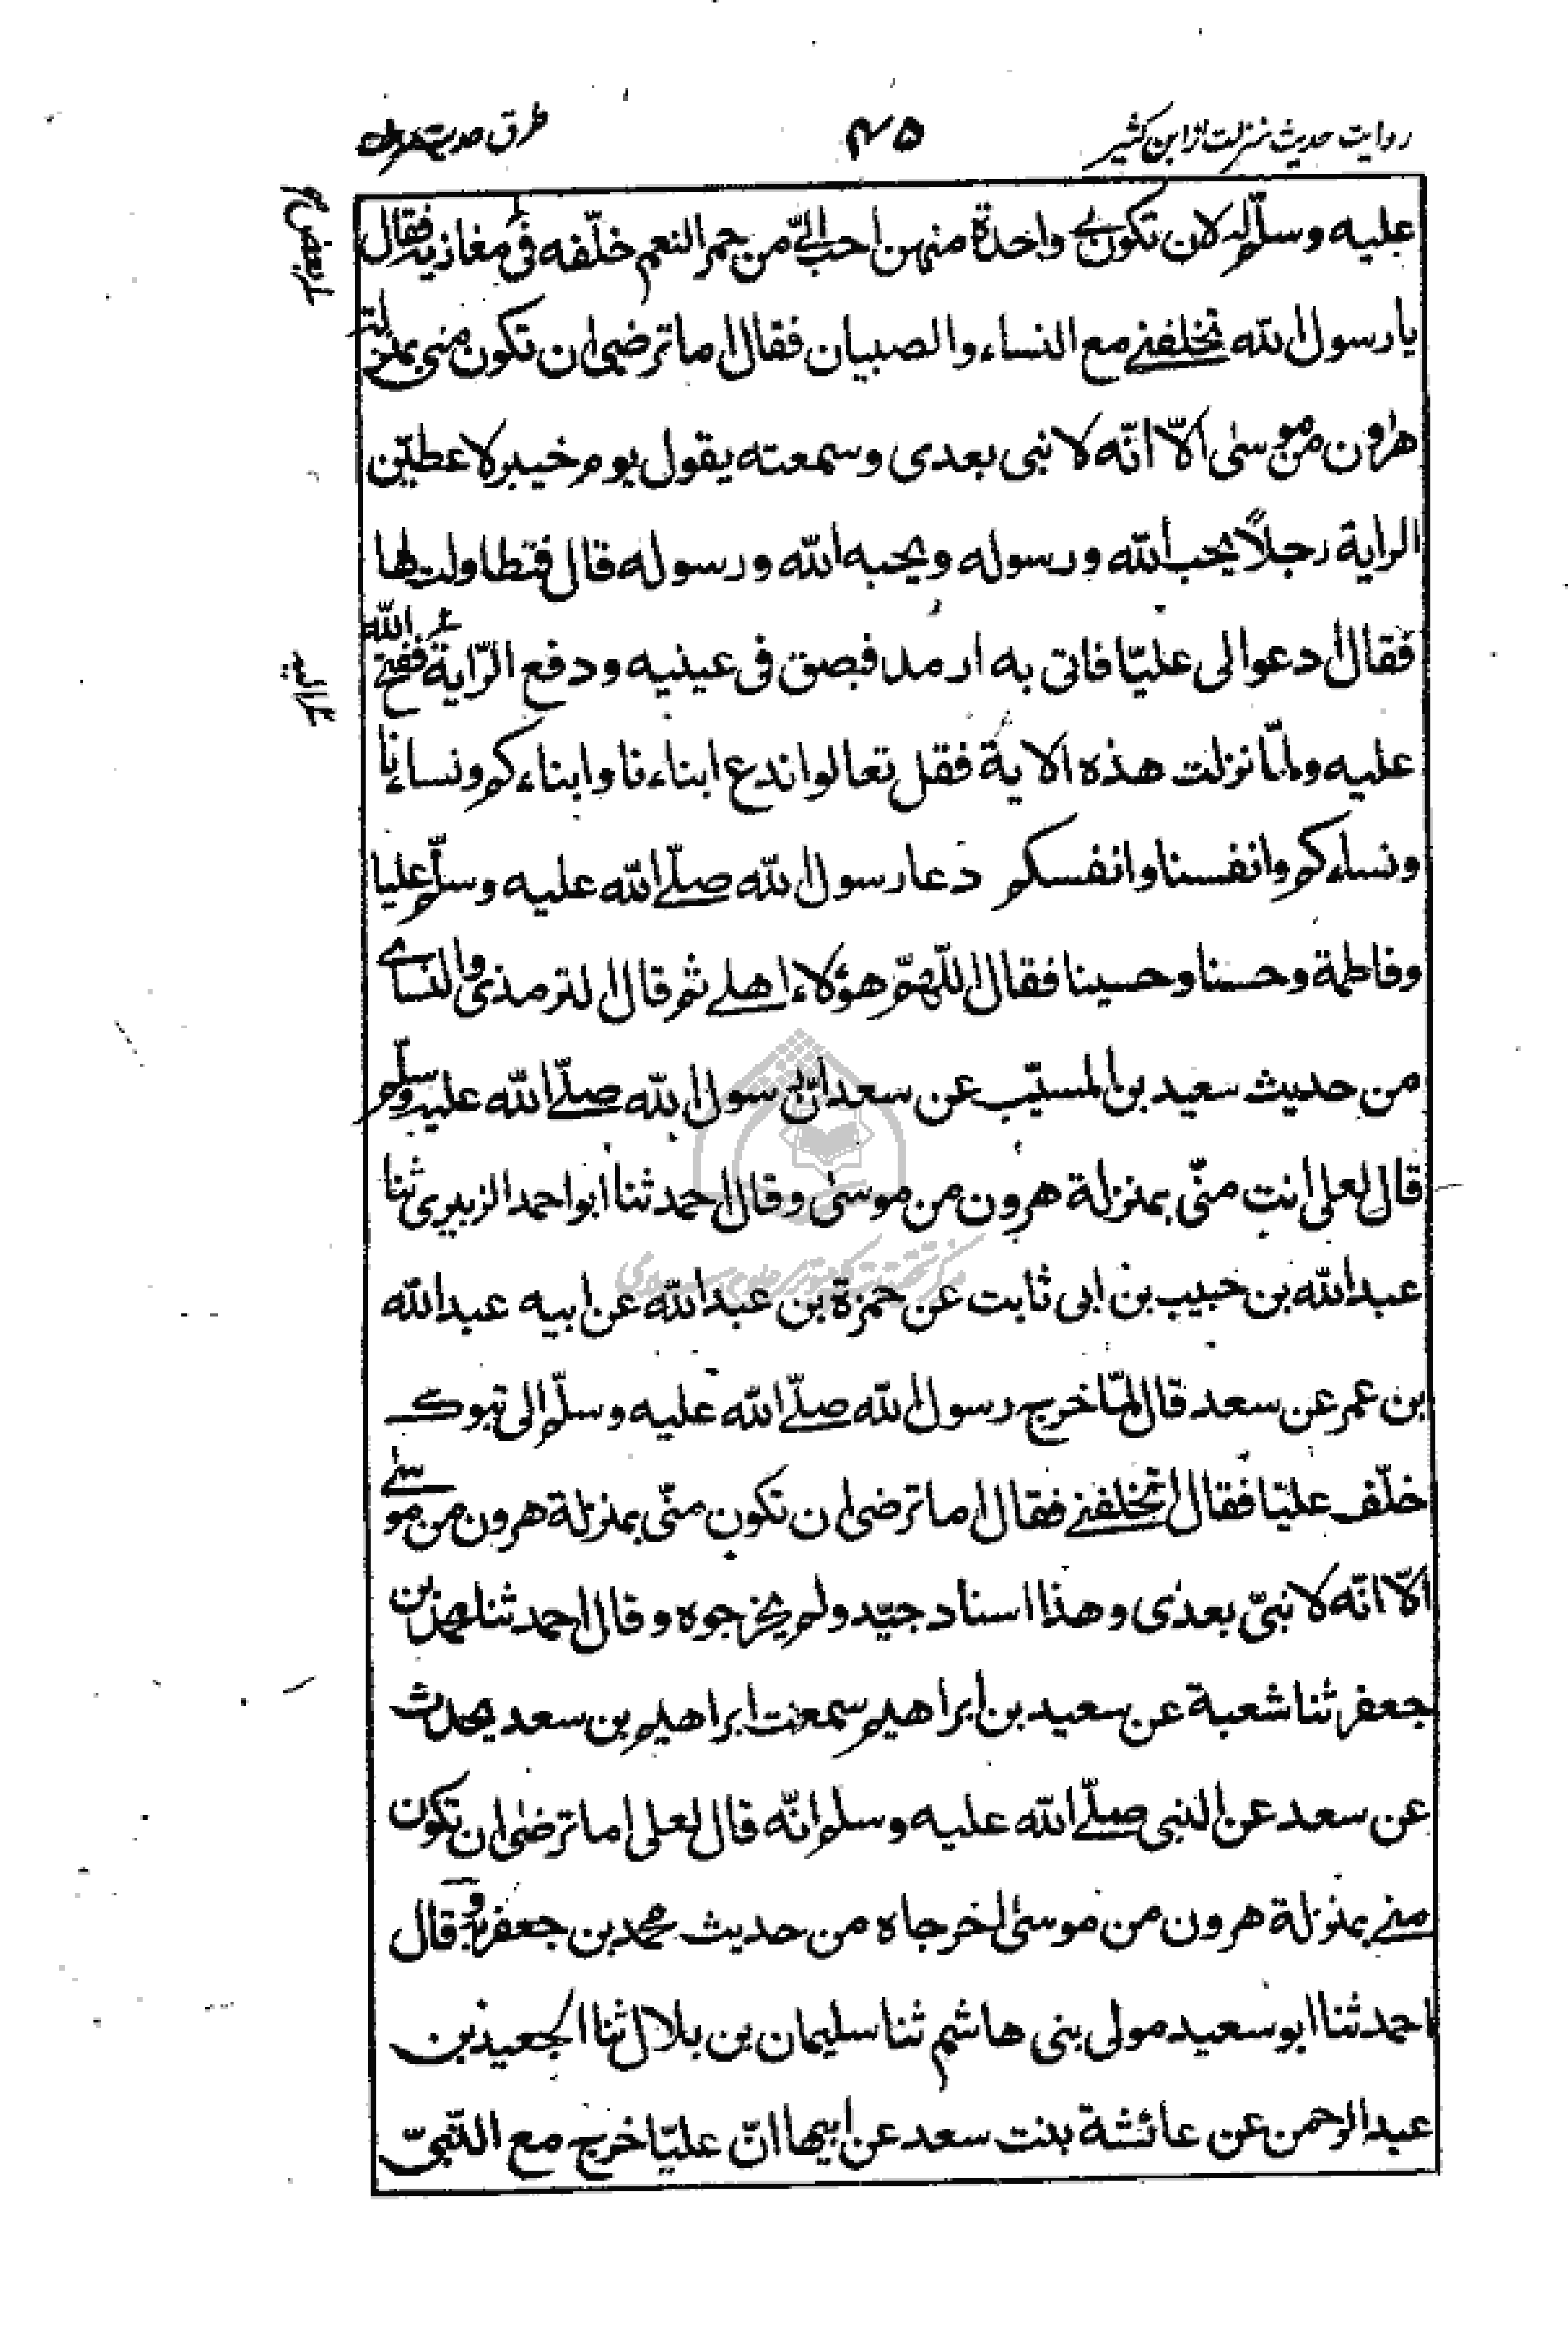 روايت حديث منزلت از ابن كثير
طرق حديث
عليه وسلّم له لان تكون لى واحدة منهن احب الىّ من حمر النعم خلّفه فى مغازيه فقال
بعض
يا رسول الله تخلفنے مع النساء والصبيان فقال اما ترضى ان تكون منى بمنزلة
هٰرون من موسٰى الّا انّه لا نبى بعدى وسمعته يقول يوم خيبر لاعطينّ
الراية رجلاً يحب الله ورسوله ويحبه الله ورسوله قال فتطاولت لها
فقال ادعوا لى عليّا فاتى به ارمد فبصق فى عينيه ودفع الرّاية ففتح الله
اليه
عليه ولمّا نزلت هذه الاية فقل تعالوا ندع ابناءنا وابناءكم ونساءنا
ونساءكم وانفسنا وانفسكم دعا رسول الله صلّے الله عليه وسلّم عليا
وفاطمة وحسنا وحسينا فقال اللّهمّ هؤلاء اهلے ثم قال الترمذى والنساے
من حديث سعيد بن المسيّب عن سعد انّ رسول الله صلّے الله عليه وسلّم
قال لعلى انت منّى بمنزلة هرون من موسٰى وقال احمد ثنا ابو احمد الزبيرى ثنا
عبد الله بن حبيب بن ابى ثابت عن حمزة بن عبد الله عن ابيه عبد الله
بن عمر عن سعد قال لمّا خرج رسول الله صلّے الله عليه وسلّم الى تبوك
خلّف عليّا فقال اتخلفنے فقال اما ترضى ان تكون منّى بمنزلة هرون من موسٰے
الّا انّه لا نبىّ بعدى وهذا اسناد جيّد ولم يخرجوه وقال احمد ثنا محمد بن
جعفر ثنا شعبة عن سعيد بن ابراهيم سمعت ابراهيم بن سعد يحدث
عن سعد عن النبى صلّے الله عليه وسلم انّه قال لعلى اما ترضٰى ان تكون
منے بمنزلة هرون من موسٰى اخرجاه من حديث محمد بن جعفر به وقال
احمد ثنا ابو سعيد مولى بنى هاشم ثنا سليمان بن بلال ثنا الجعيد بن
عبد الرحمن عن عائشة بنت سعد عن ابيها انّ عليّا خرج مع النّبىّ